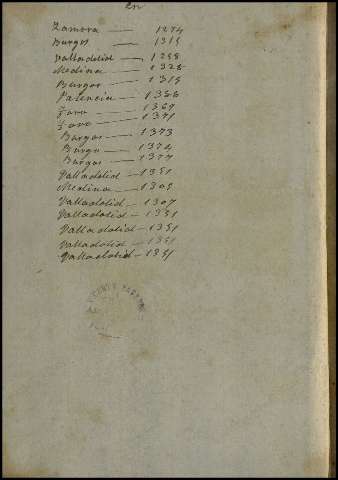 en
Zamora — 1274
Burgos — 1315
Valladolid — 1258
Medina — 1328
Burgos — 1315
Palencia — 1388
Toro — 1369
Toro — 1371
Burgos — 1373
Burgos — 1374
Burgos — 1377
Valladolid — 1351
Medina — 1305
Valladolid — 1307
Valladolid — 1351
Valladolid — 1351
Valladolid — 1351
Valladolid — 1351